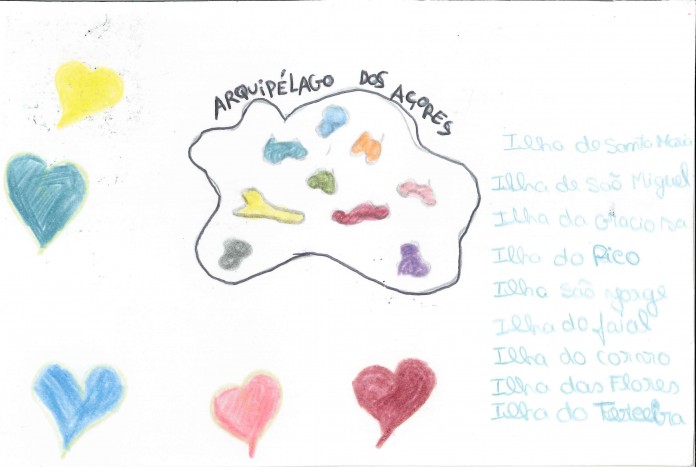 ARQUIPÉLAGO DOS AÇORES
Ilha de Santa Maria
Ilha de São Miguel
Ilha da Graciosa
Ilha do Pico
Ilha São Jorge
Ilha do faial
Ilha do corvo
Ilha das Flores
Ilha do Terceira